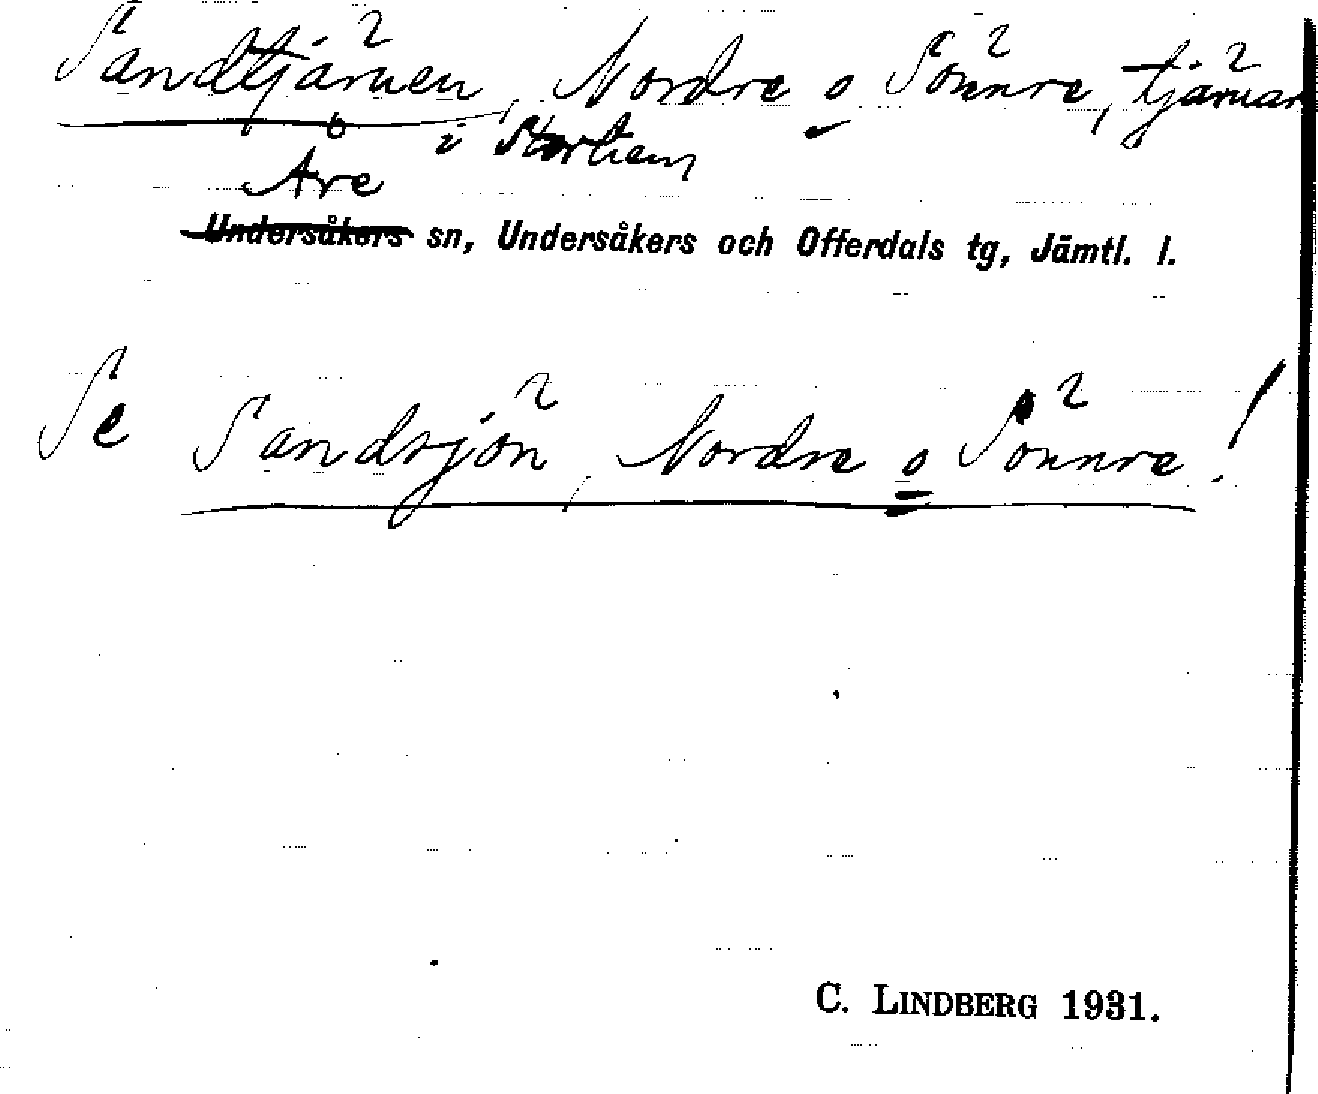 Sandtjärnen, Nordre o Sönnre, tjärnar
i Storlien
Åre
Undersåkers sn, Undersåkers och Offerdals tg, Jämtl. l.
Se Sandsjön, Nordre o Sönnre!
C. LINDBERG 1931.